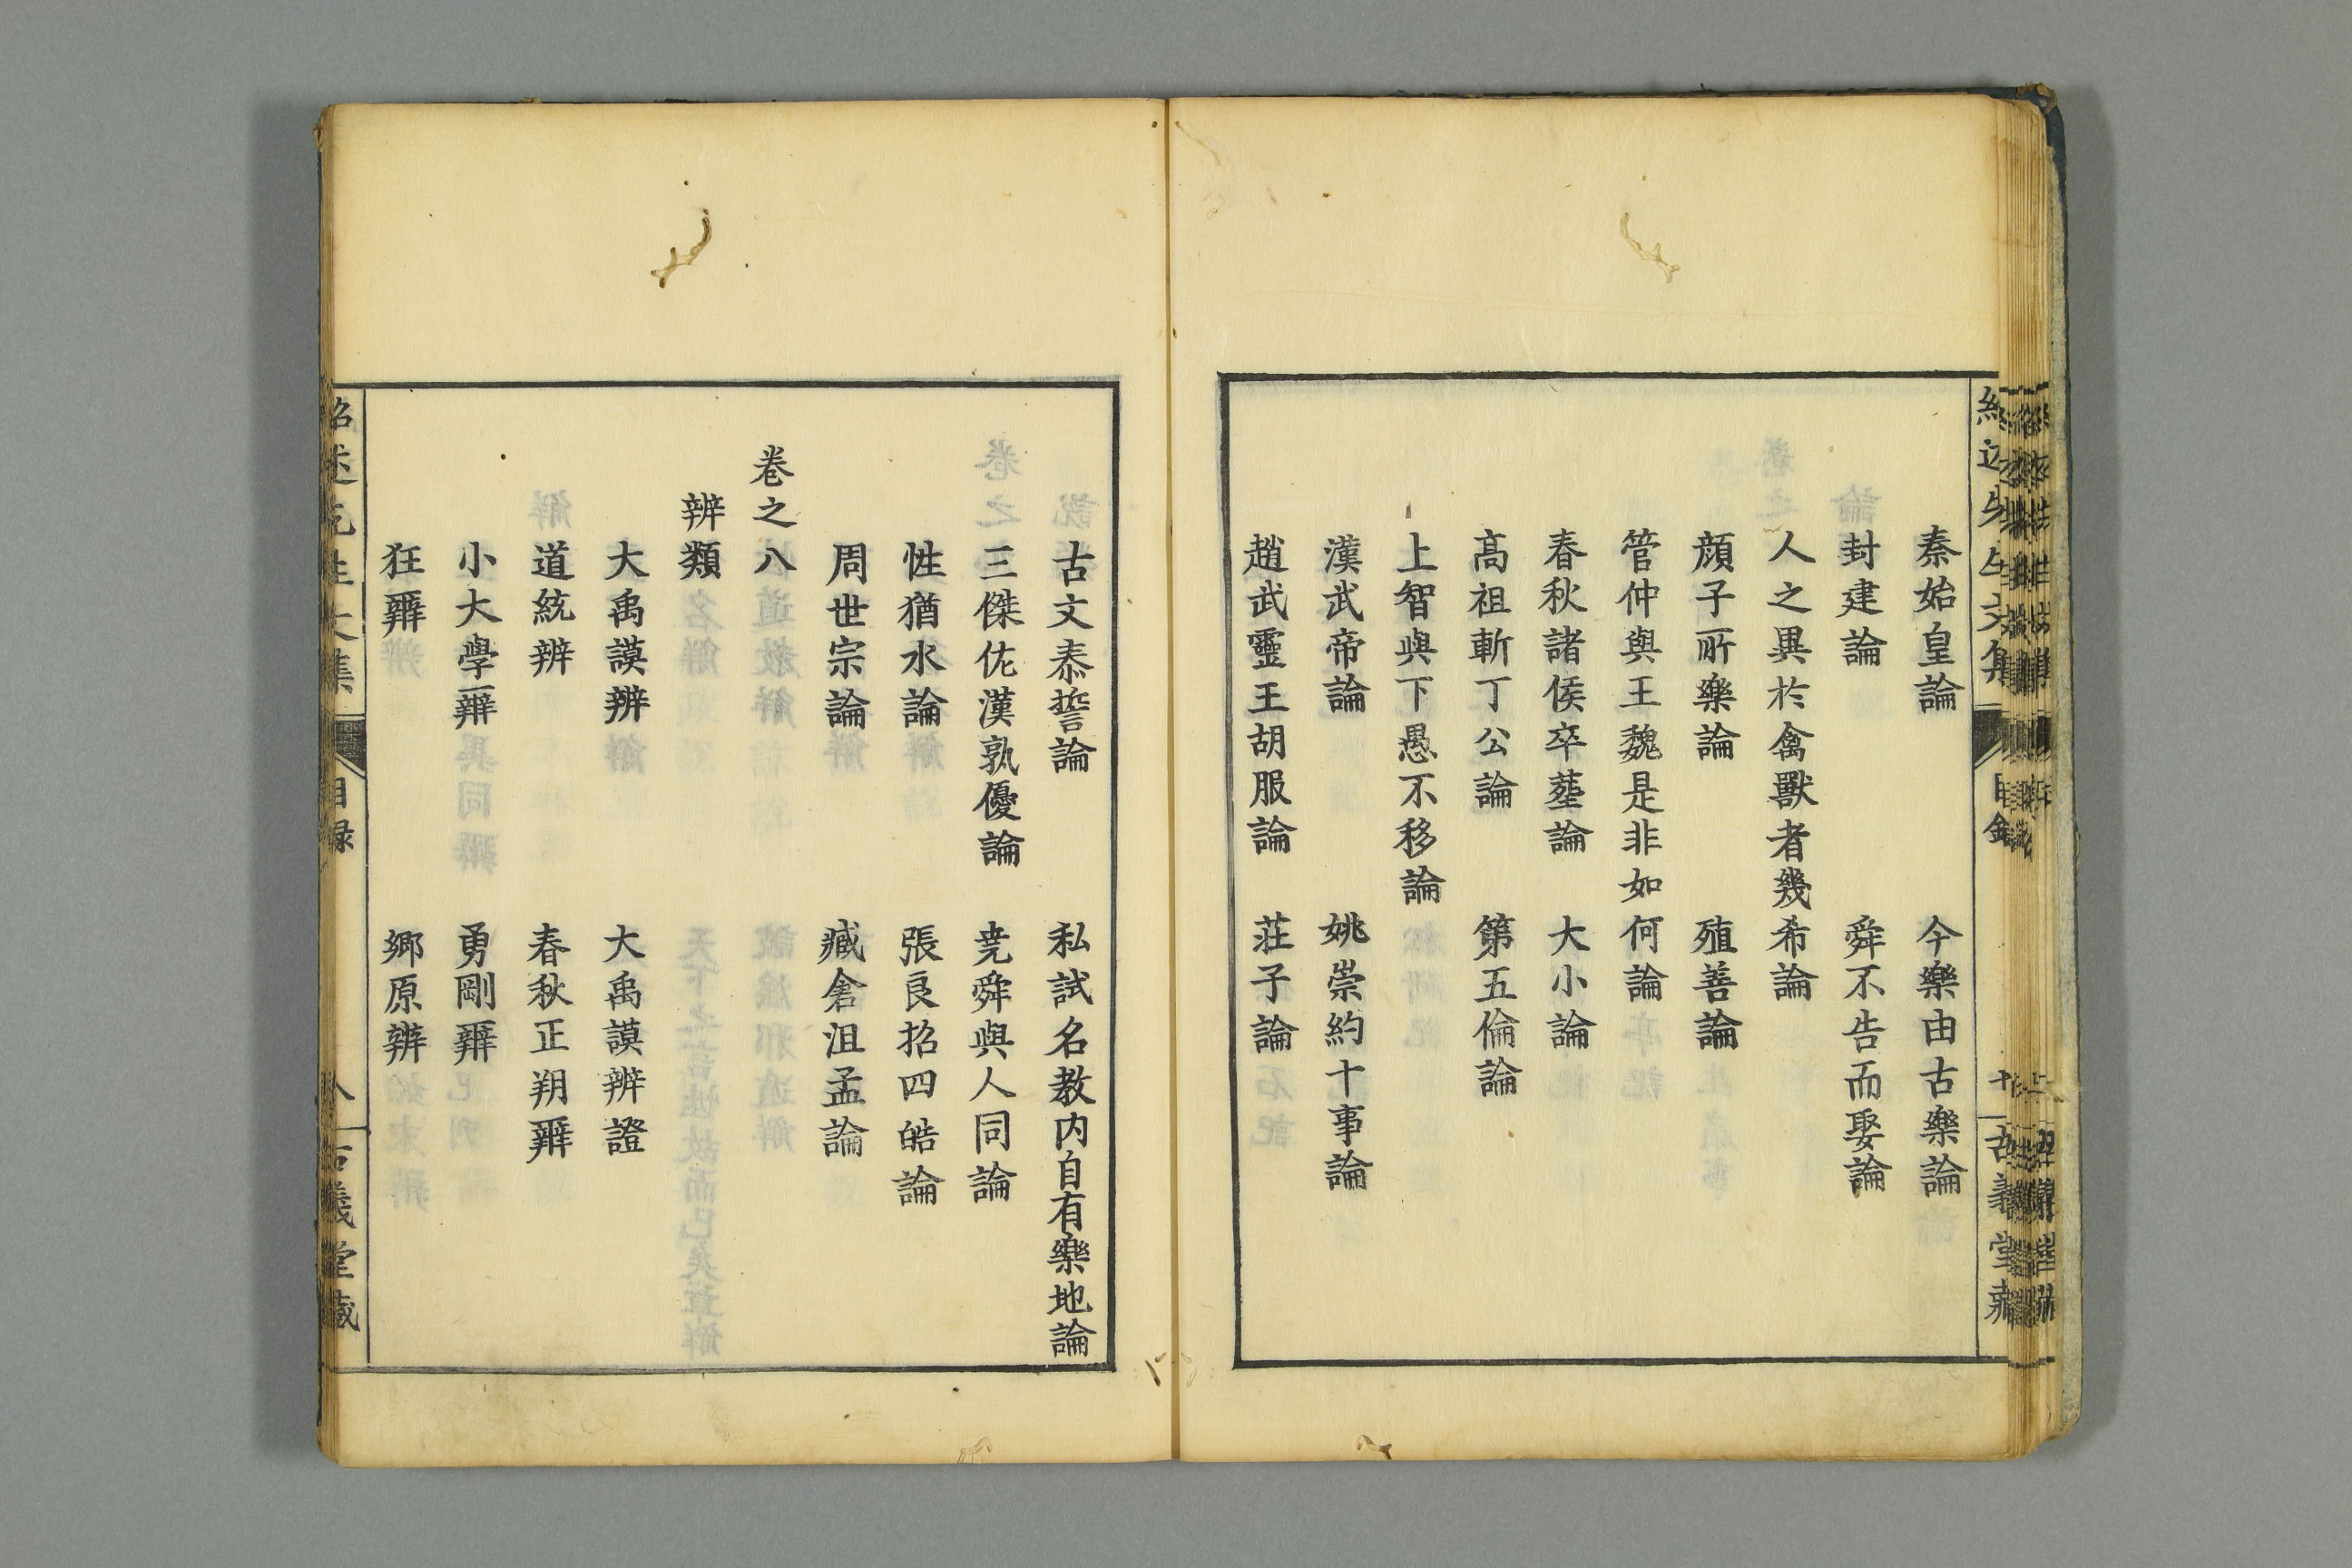 秦始皇論　今樂由古樂論
封建論　舜不告而娶論
人之異於禽獸者幾希論
顔子所樂論　殖善論
管仲與王魏是非如何論
春秋諸侯卒塟論　大小論
髙祖斬丁公論　第五倫論
上智與下愚不移論
漢武帝論　姚崇約十事論
趙武靈王胡服論　荘子論
古文泰誓論　私試名教内自有樂地論
三傑佐漢孰優論　尭舜與人同論
性猶水論　張良招四皓論
周世宗論　臧倉沮孟論
巻之八
辨類
大禹謨辨　大禹謨辨證
道統辨　春秋正朔辨
小大學辨　勇剛辨
狂辨　鄉原辨
紹述先生文集　目録　八　古義堂藏